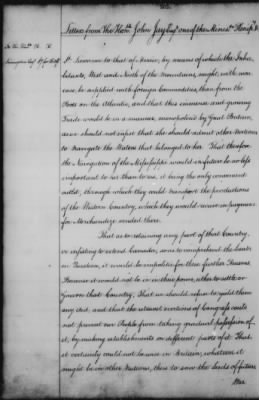 Letters from the Honble John Jay Esqr one of the Minisrs Plenipo &c
St. Lawrence to that of Hudson, by means of which the Inha-
bitants, West and North of the Mountains, might, with more
ease, be supplied with foreign Commodities, than from the
Ports on the Atlantic, and that this immense and growing
Trade would be in a manner, monopolized by Great Britain,
as we should not insist that she should admit other Nations
to Navigate the Waters that belonged to her. That therefore
the Navigation of the Mississippi would in future be no less
important to her than to us, it being the only convenient
outlet, through which they could transport the productions
of the Western Country, which they would receive in payment
for Merchandize vended there.
That as to retaining any part of that Country,
or insisting to extend Canada, so as to comprehend the lands
in Question, it would be impolitic for these further Reasons
Because it would not be in their power, either to settle or
govern that Country; That we should refuse to yield them
any aid, and that the utmost exertions of Congress could
not prevent our People from taking gradual possession of
it, by making establishments in different parts of it. That
it certainly could not be wise in Britain, whatever it
might be in other Nations, thus to sow the seeds of future
War